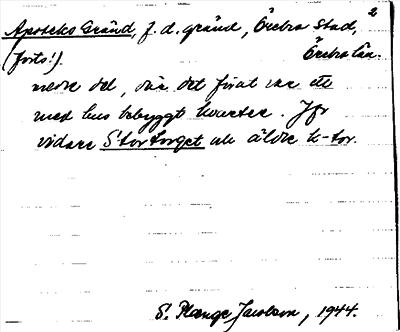 2
Apoteks Gränd, f. d. gränd, Örebro stad,
(forts!). Örebro län.
nedre del, där det förut var ett
med hus bebyggt kvarter. Jfr
vidare Stortorget och äldre k-tor.
S. Plange Jacobson, 1944.